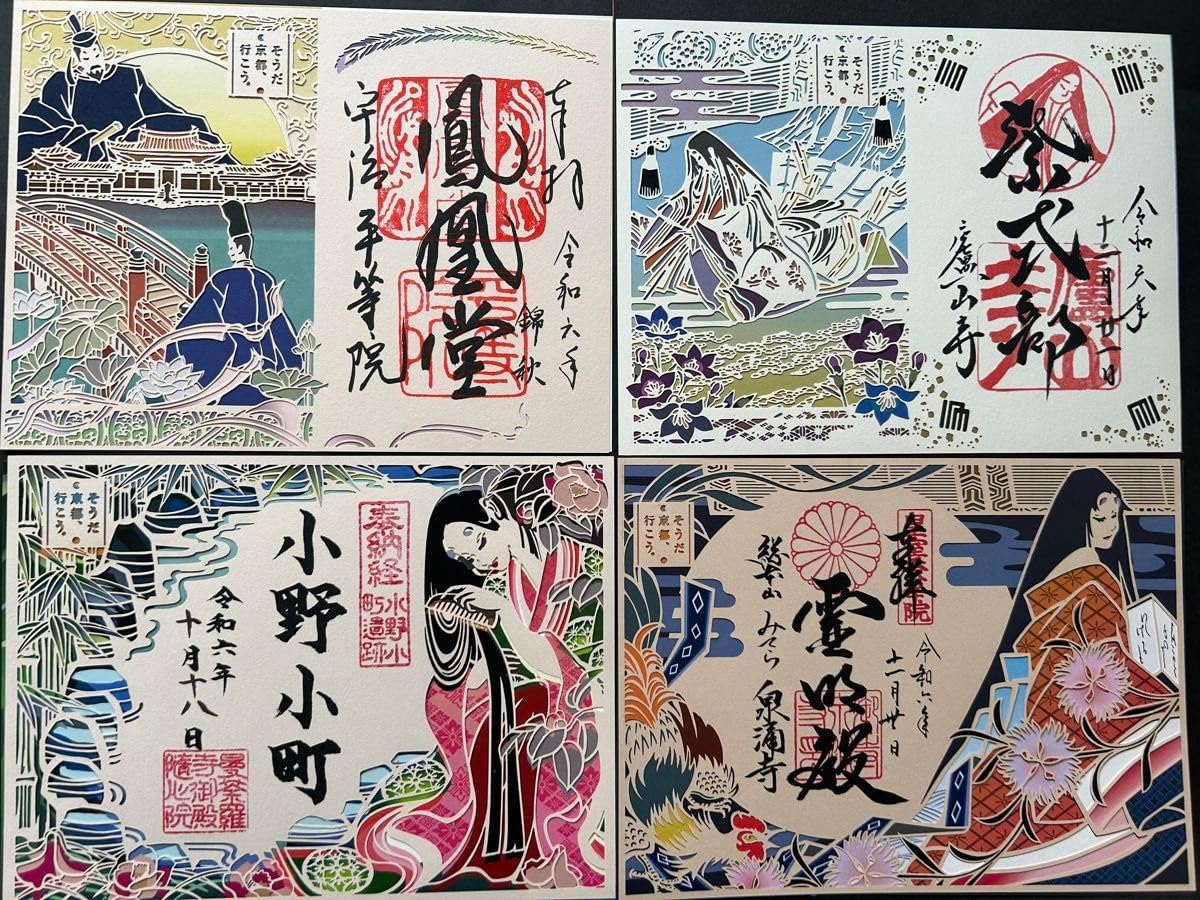 そうだ
京都、
行こう。
奉拝
鳳凰堂
令和六年
錦秋
宇治平等院
そうだ
京都、
行こう。
紫式部
令和六年
十二月廿一日
廬山寺
廬山寺
そうだ
京都、
行こう。
奉納経
小野小
町遺跡
小野小町
令和六年
十月十八日
曼荼羅
寺御殿
隨心院
そうだ
京都、
行こう。
奉拝
霊明殿
みてら
泉涌寺
令和六年
十一月廿日